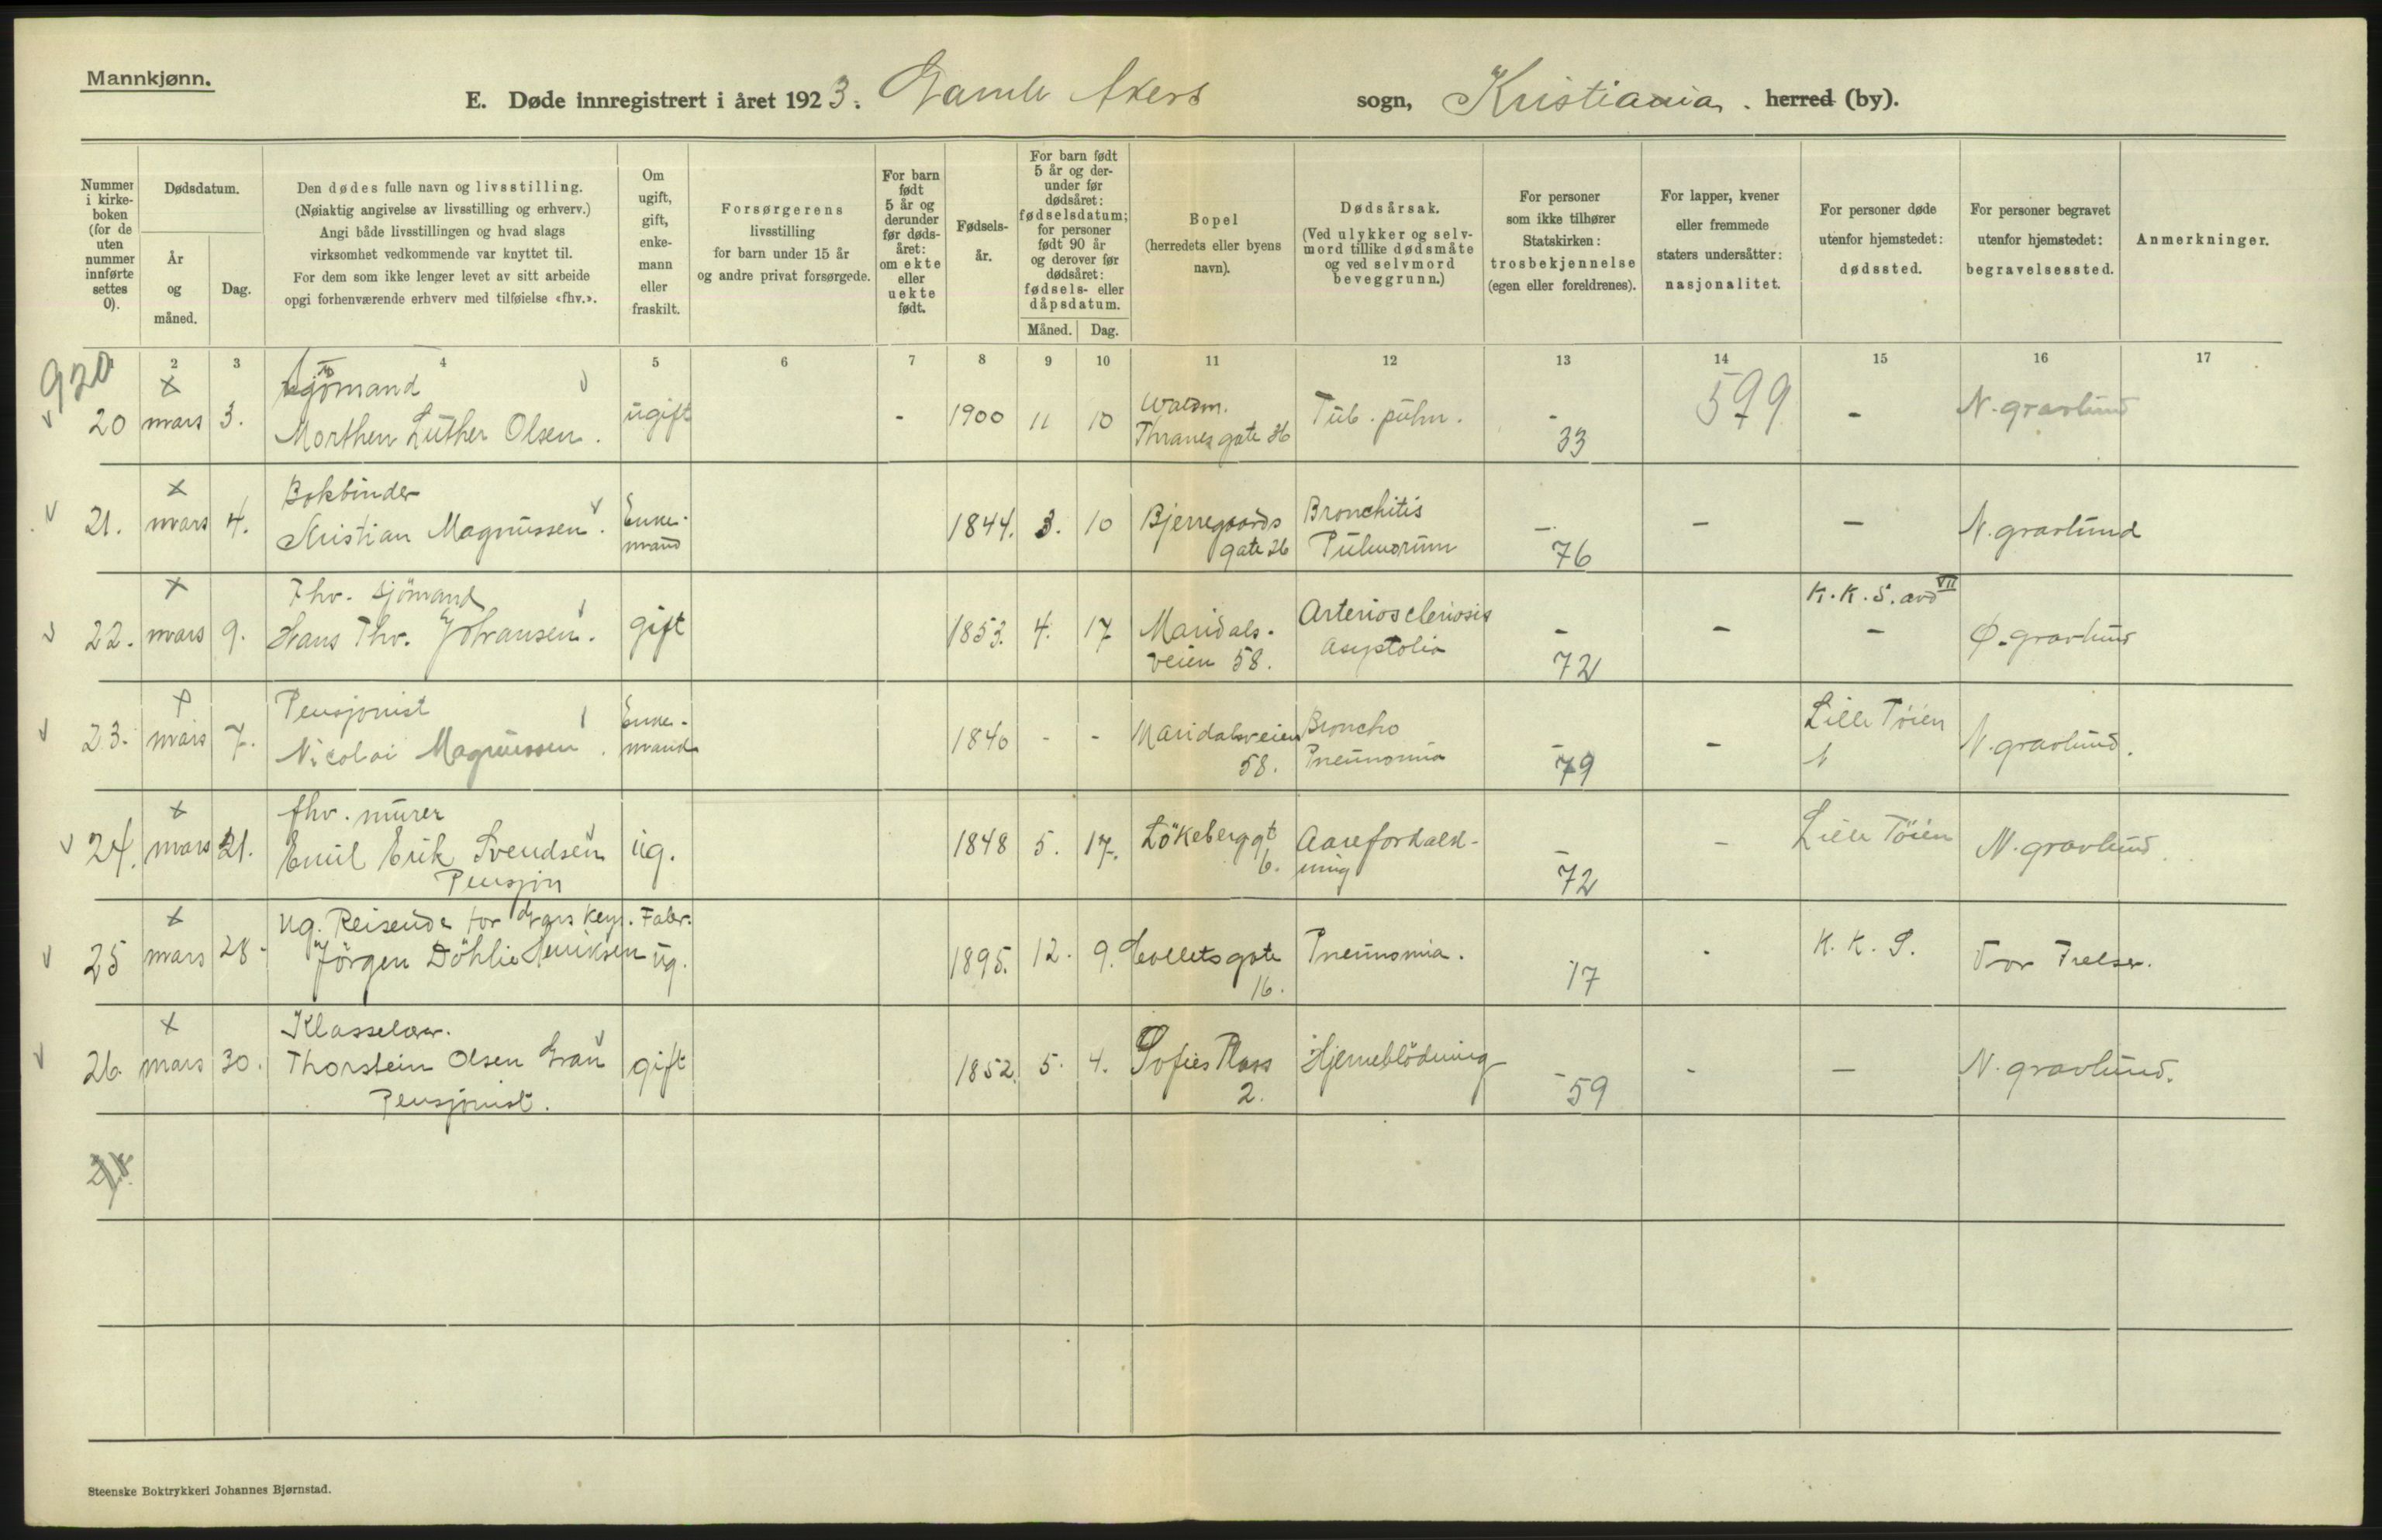 Mannkjønn.
E. Døde innregistrert i året 1923. Gamle Akers sogn, Kristiania. herred (by).
Nummer i kirke-boken (for de uten nummer innførte settes 0).
Dødsdatum.
År og måned.
Dag.
Den dødes fulle navn og livsstilling.
(Nøiaktig angivelse av livsstilling og erhverv.)
Angi både livsstillingen og hvad slags
virksomhet vedkommende var knyttet til.
For dem som ikke lenger levet av sitt arbeide
opgi forhenværende erhverv med tilføielse «fhv.».
Om ugift, gift, enke-mann eller fraskilt.
Forsørgerens
livsstilling
for barn under 15 år
og andre privat forsørgede.
For barn født 5 år og derunder før døds-året: om ekte eller uekte født.
Fødsels-år.
For barn født 5 år og der-under før dødsåret: fødselsdatum; for personer født 90 år og derover før dødsåret: fødsels- eller dåpsdatum.
Måned. Dag.
Bopel
(herredets eller byens
navn).
Dødsårsak.
(Ved ulykker og selv-mord tillike dødsmåte og ved selvmord beveggrunn.)
For personer
som ikke tilhører
Statskirken:
trosbekjennelse
(egen eller foreldrenes).
For lapper, kvener
eller fremmede
staters undersåtter:
nasjonalitet.
For personer døde
utenfor hjemstedet:
dødssted.
For personer begravet
utenfor hjemstedet:
begravelsessted.
Anmerkninger.
2 3 4 5 6 7 8 9 10 11 12 13 14 15 16 17
920
x sjömand
v 20 mars 3. Morthen Luther Olsen. ugift - 1900 11 10 Waldm. Thranes gate 36 Tub. pulm. - 33 599 - N. gravlund
x Bokbinder
v 21. mars 4. Kristian Magnussen. Enke-mand 1844. 3. 10 Bjerregaards gate 26 Bronchitis Pulmorum - 76 - - N. gravlund
x Fhv. sjömand
v 22. mars 9. Hans Thv. Johansen. gift 1853. 4. 17 Maridals-veien 58. Arterioscleriosis Asystolia - 72 - K.K.S. avd VII - Ø. gravlund
x Pensjonist
v 23. mars 7. Nicolai Magnussen. Enke-mand 1840 - - Maridalsveien 58. Broncho Pneumonia - 79 - Lille Töien N. gravlund.
x fhv. murer
v 24. mars 21. Emil Erik Svendsen ug. 1848 5. 17. Lökeberggt 6. Aareforkalk-ning - 72 - Lille Töien N. gravlund
Pensjon
x Ug. Reisende for kem. Fabr.
v 25 mars 28. Jörgen Döhlie Henriksen ug. 1895. 12. 9. Collets gate 16. Pneumonia. 17 - K. K. S. Vor Frelser.
x Klasselærer.
v 26. mars 30. Thorstein Olsen Gran gift 1852. 5. 4. Sofies Plass 2. Hjerneblödning - 59 - - N. gravlund.
Pensjonist.
Steenske Boktrykkeri Johannes Bjørnstad.